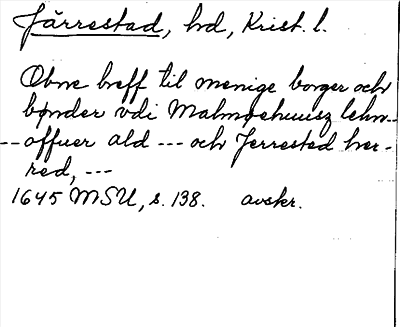 Järrestad, hd, Krist. l.
Obne breff til menige borger och
bønder vdi Malmøehuusz lehn --
-- offuer ald --- och Jerrested her-
red, ---
1645 MSU, s. 138. avskr.